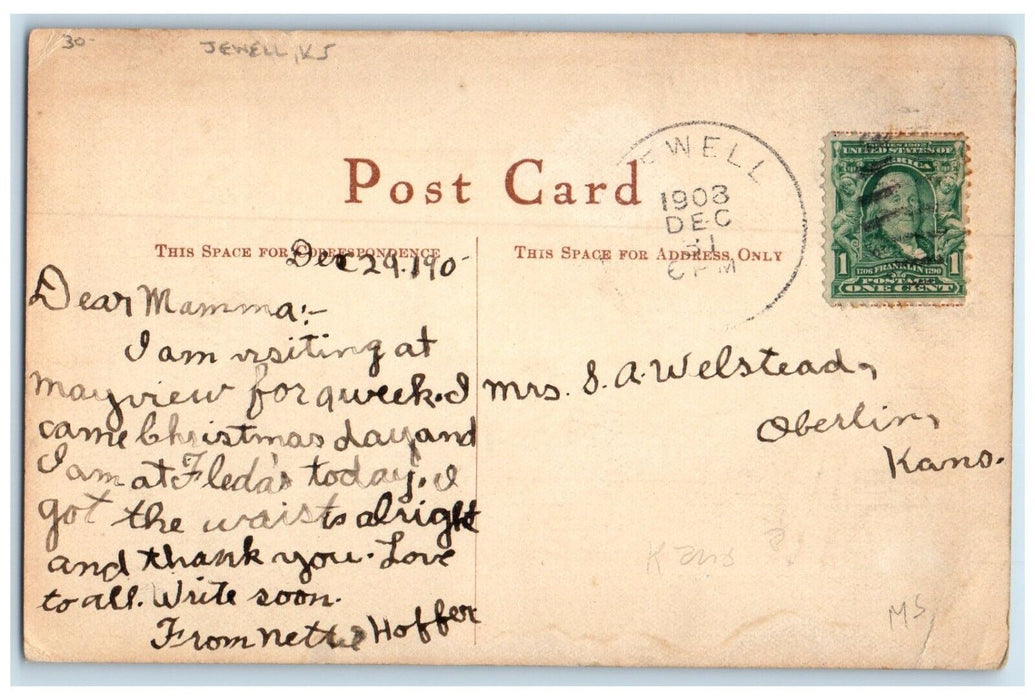 30-
JEWELL, KS
Post Card
EWELL
1908
DEC
31
6 PM
SERIES 1902
UNITED STATES OF
AMERICA
1 1706 FRANKLIN 1790 1
POSTAGE
ONE CENT
THIS SPACE FOR CORRESPONDENCE
THIS SPACE FOR ADDRESS ONLY
Dec 29-190-
Dear Mamma:-
I am visiting at
mayview for a week. I
came Christmas day and
I am at Fleda's today. I
got the waists alright
and thank you. Love
to all. Write soon.
From Nettie Hoffer
Mrs. S. A. Welstead,
Oberlin,
Kans.
Kans ?
MS